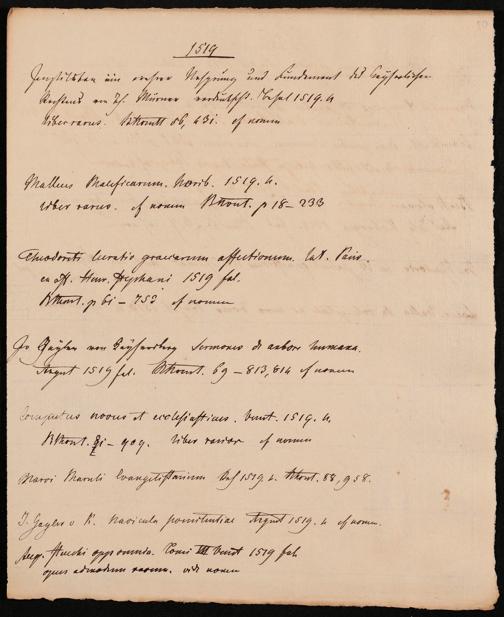 1519
Institution ein wahrer Ursprung und Fundament des Keyserlichen
Rechtens von Th. Murner verdeutscht. Basel 1519. 4
Liber rarus. of nomen
Malleus Maleficarum. Norib. 1519. 4.
liber rarus. of nomen Bthont. p 18 – 233
Theodoriti Curatio graecarum affectionum. lat. Paris.
ex off. Henr. Stephani 1519 fol.
Bthont. p 61 – 753 of nomen
Jo Gayler von Kaysersberg Sermones de arbore humana.
Argent 1519 fol. Bthont. 69 – 813, 814 of nomen
Computus novus et ecclesiasticus. Venet. 1519. 4.
Bthont. – 909. liber rarior of nomen
Marci Maruli Evangelistarium Bas 1519. 4. Bthont. 88, 958.
J. Gayler v K. Navicula poenitentiae Argent 1519. 4 of nomen.
opp omnia. Tomi III Venet 1519 fol.
opus admodum rarum. vide nomen